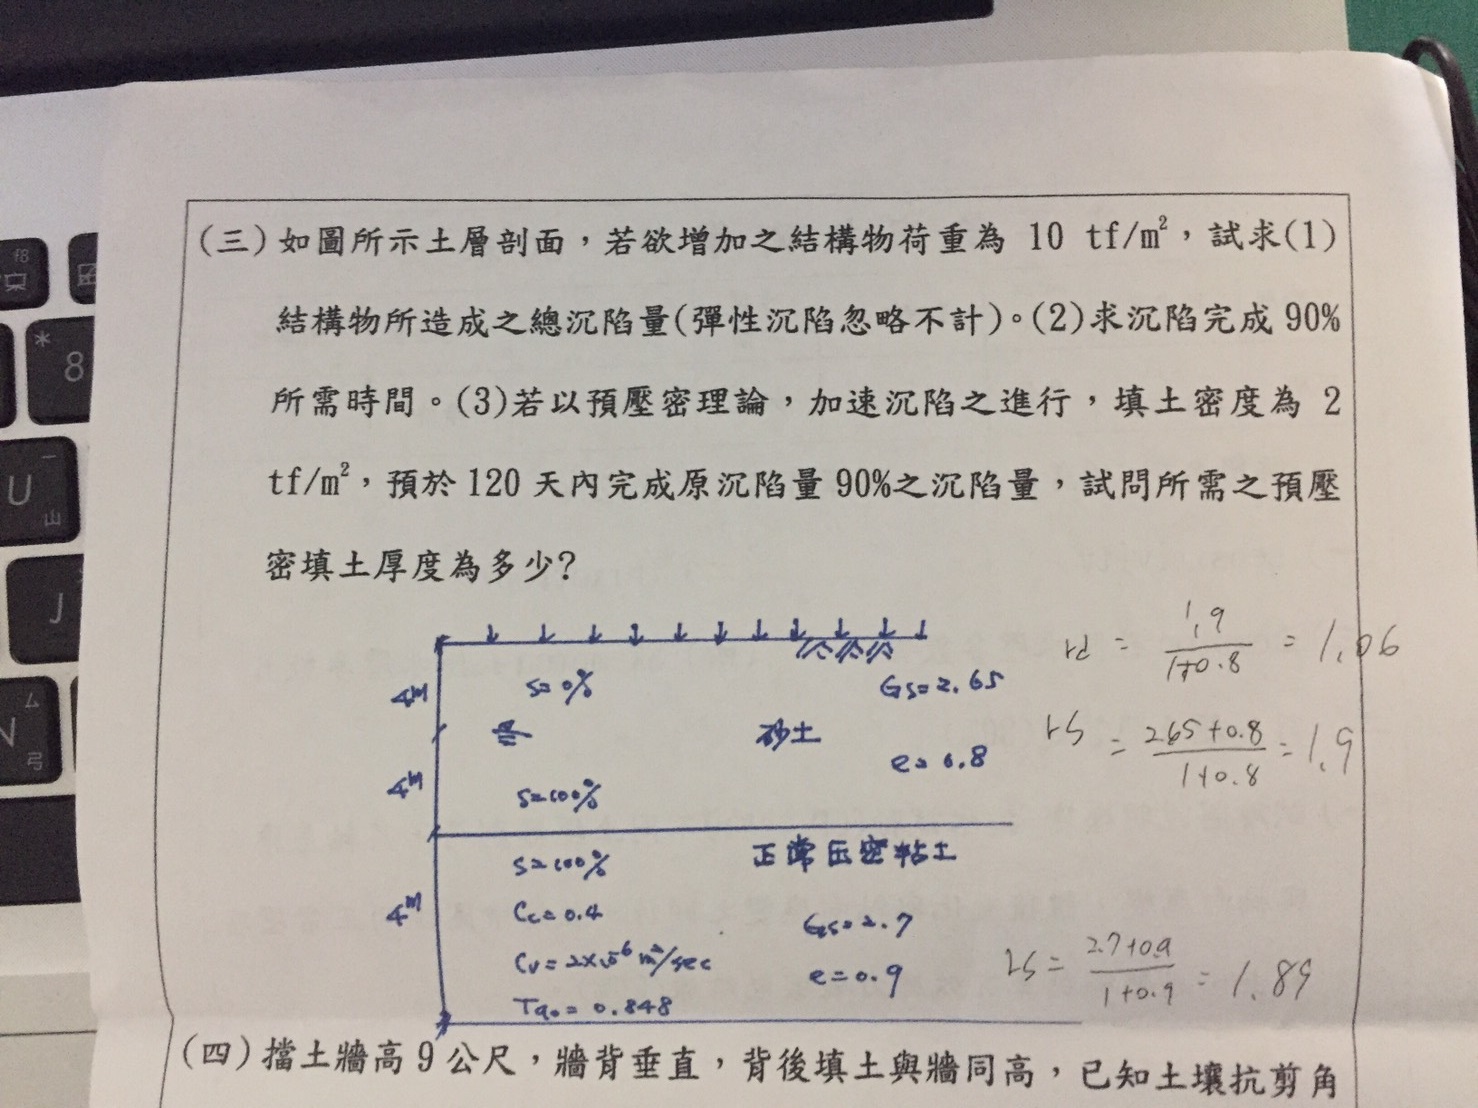 (三)如圖所示土層剖面，若欲增加之結構物荷重為 10 tf/m²，試求(1)
結構物所造成之總沉陷量(彈性沉陷忽略不計)。(2)求沉陷完成 90%
所需時間。(3)若以預壓密理論，加速沉陷之進行，填土密度為 2
tf/m²，預於 120 天內完成原沉陷量 90%之沉陷量，試問所需之預壓
密填土厚度為多少?
4m
S=0%
Gs=2.65
砂土
e=0.8
4m
S=100%
rd = 1.9/1+0.8 = 1.06
rs = 2.65+0.8/1+0.8 = 1.9
S=100%
正常压密粘土
4m
Cc=0.4
Gs=2.7
Cv=2×10⁻⁶ m²/sec
e=0.9
T90=0.848
rs = 2.7+0.9/1+0.9 = 1.89
(四)擋土牆高 9 公尺，牆背垂直，背後填土與牆同高，已知土壤抗剪角
f8
*
8
U
山
J
ム
弓